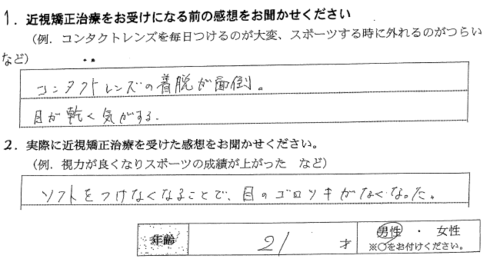 1．近視矯正治療をお受けになる前の感想をお聞かせください
（例．コンタクトレンズを毎日つけるのが大変、スポーツする時に外れるのがつらい
など）
コンタクトレンズの着脱が面倒。
目が乾く気がする。
2．実際に近視矯正治療を受けた感想をお聞かせください。
（例．視力が良くなりスポーツの成績が上がった　など）
ソフトをつけなくなることで、目のゴロツキがなくなった。
年齢　21　才　男性・女性
※○をお付けください。